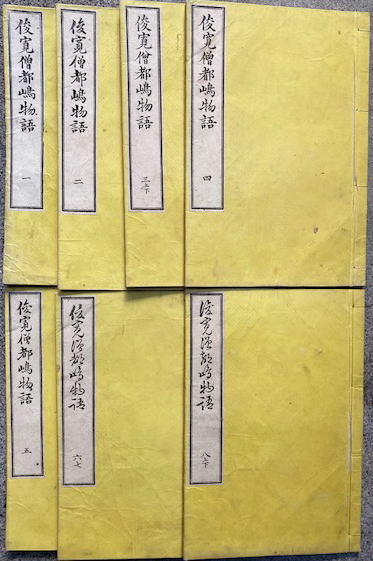 俊寛僧都嶋物語 一
俊寛僧都嶋物語 二
俊寛僧都嶋物語 三上下
俊寛僧都嶋物語 四
俊寛僧都嶋物語 五
俊寛僧都嶋物語 六七
俊寛僧都嶋物語 八上下